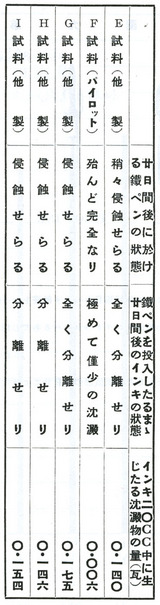 E 試料（他製）
F 試料（パイロット）
G 試料（他製）
H 試料（他製）
I 試料（他製）
廿日間後に於け
る鐵ペンの狀態
稍々侵蝕せらる
殆んど完全なり
侵蝕せらる
侵蝕せらる
侵蝕せらる
鐵ペンを投入したるまゝ
廿日間後のインキの狀態
全く分離せり
極めて僅少の沈澱
全く分離せり
分離せり
分離せり
インキ二〇CC中に生
じたる沈澱物の量（瓦）
〇・一四〇
〇・〇〇六
〇・一七五
〇・一四六
〇・一五四